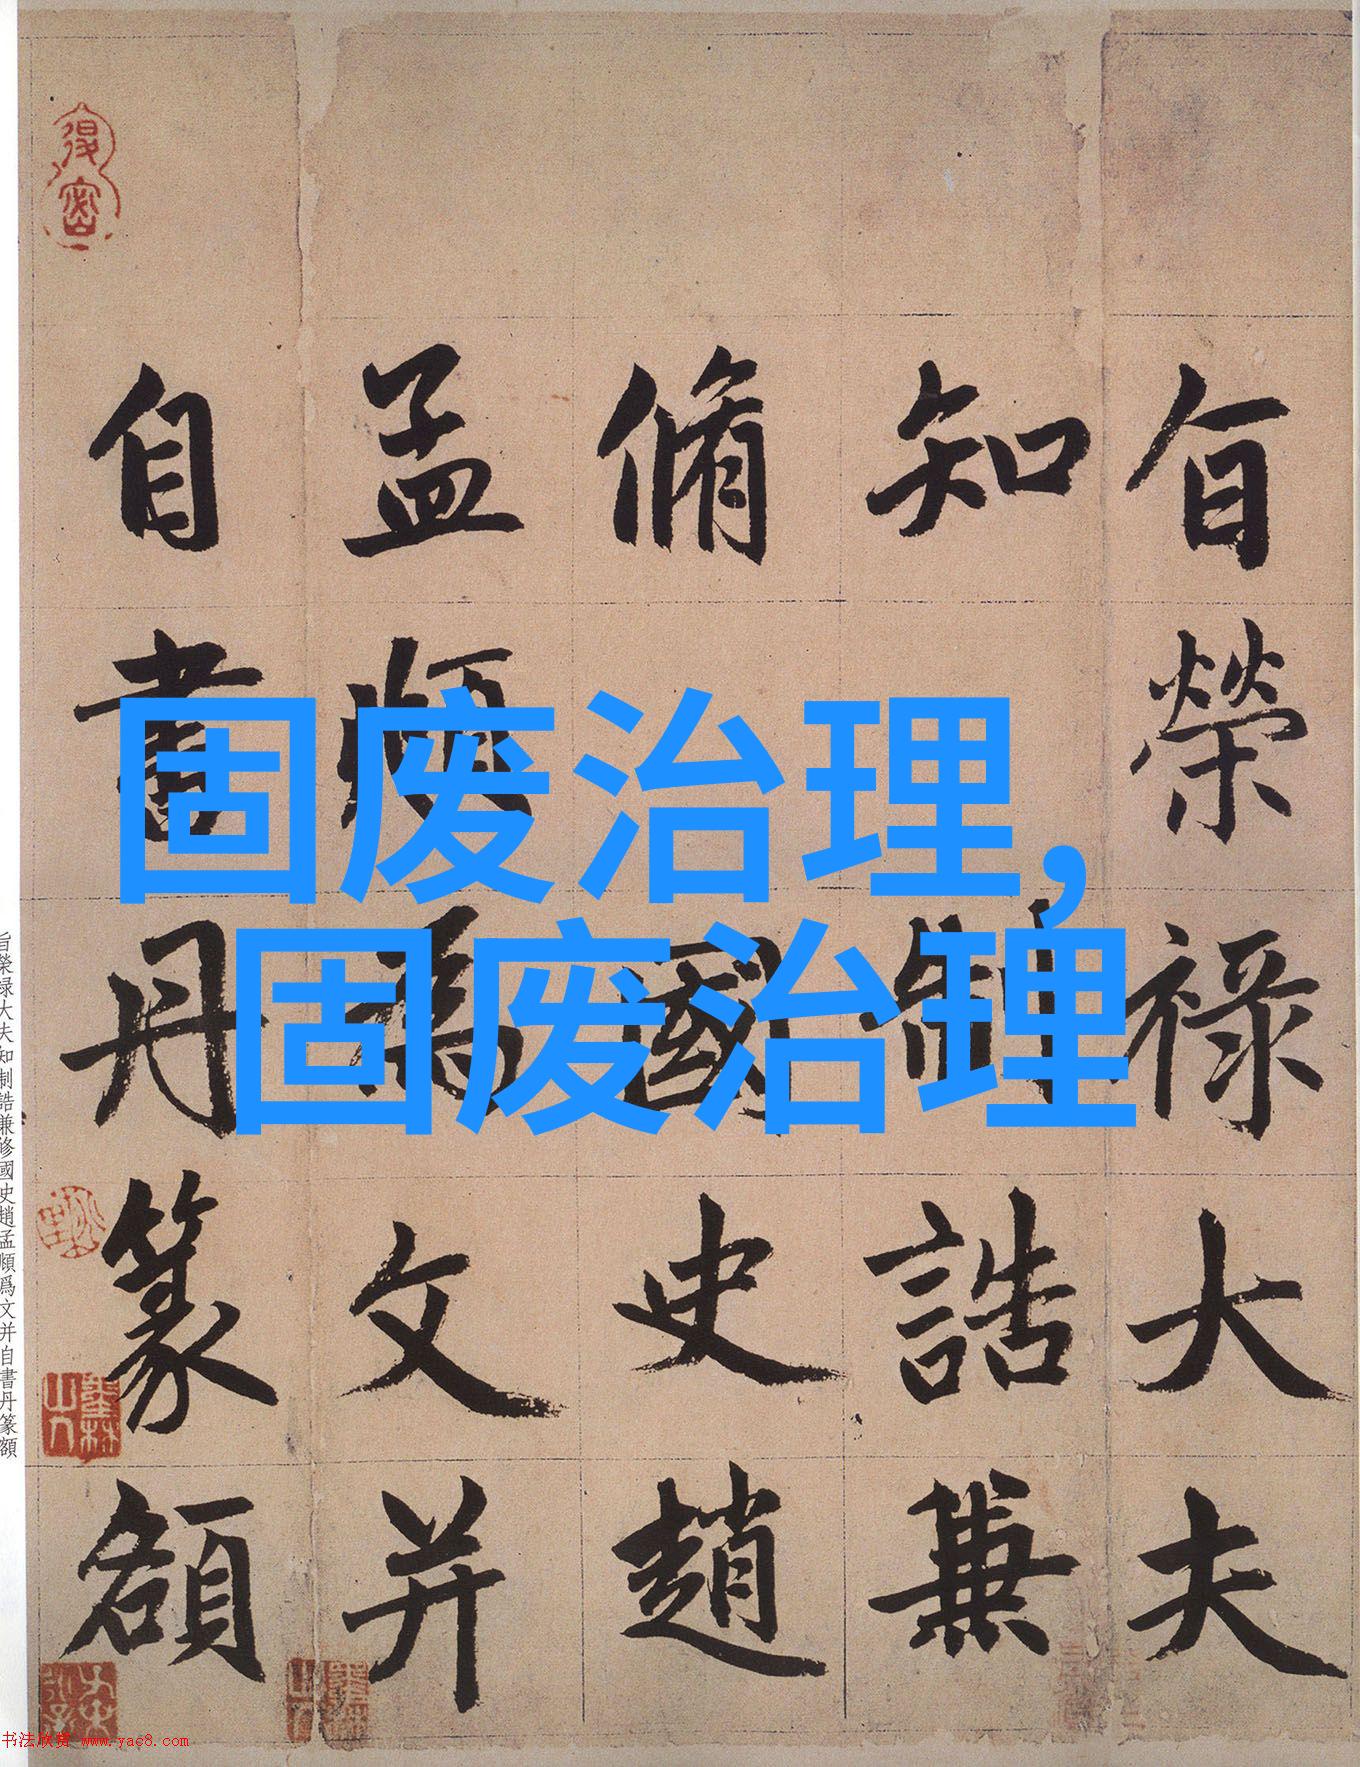 固废治理,
固废治理
旨榮禄大夫
知制誥兼
脩國史趙
孟頫為文并
自書丹篆額
旨榮禄大夫知制誥兼修國史趙孟頫爲文并自書丹篆額
书法欣赏 www.yac8.com